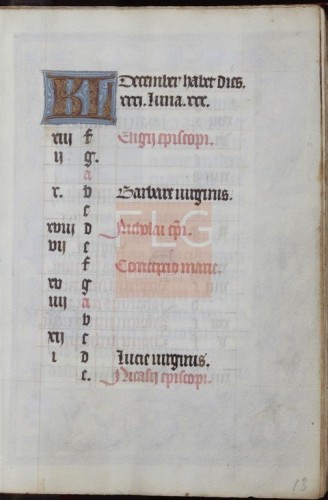 KL December habet dies.
xxxi. luna. xxx.
xiii f Eligij episcopi.
ij g.
a
x. b Barbare uirginis.
c
xviii d Nicholai epi.
vij e
f Conceptio marie.
xv g
iiij a
b
xij c
i d Lucie uirginis.
e. Nicasij episcopi.
FLG
13